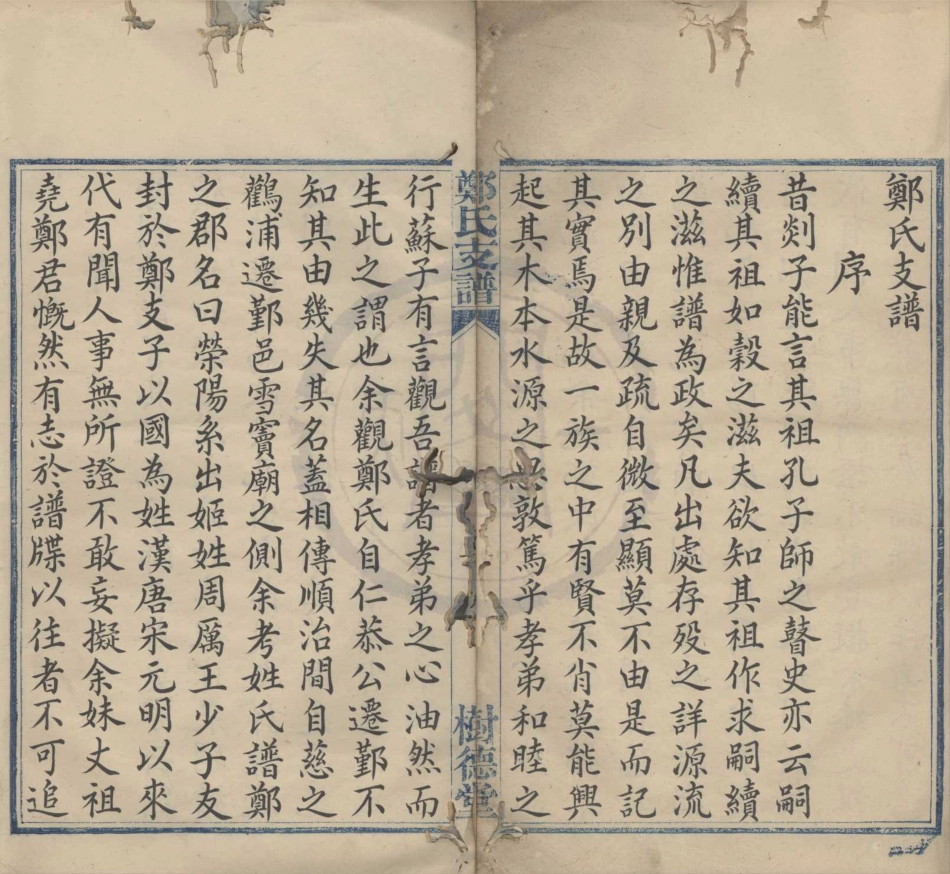 鄭氏支譜
序
昔剡子能言其祖孔子師之瞽史亦云嗣
續其祖如穀之滋夫欲知其祖作求嗣續
之滋惟譜為政矣凡出處存歿之詳源流
之別由親及疏自微至顯莫不由是而記
其實焉是故一族之中有賢不肖莫能興
起其木本水源之敦篤乎孝弟和睦之
鄭氏支譜
樹德堂
行蘇子有言觀吾譜者孝弟之心油然而
生此之謂也余觀鄭氏自仁恭公遷鄞不
知其由幾失其名蓋相傳順治間自慈之
鸛浦遷鄞邑雪竇廟之側余考姓氏譜鄭
之郡名曰榮陽系出姬姓周厲王少子友
封於鄭支子以國為姓漢唐宋元明以來
代有聞人事無所證不敢妄擬余妹丈祖
堯鄭君慨然有志於譜牒以往者不可追